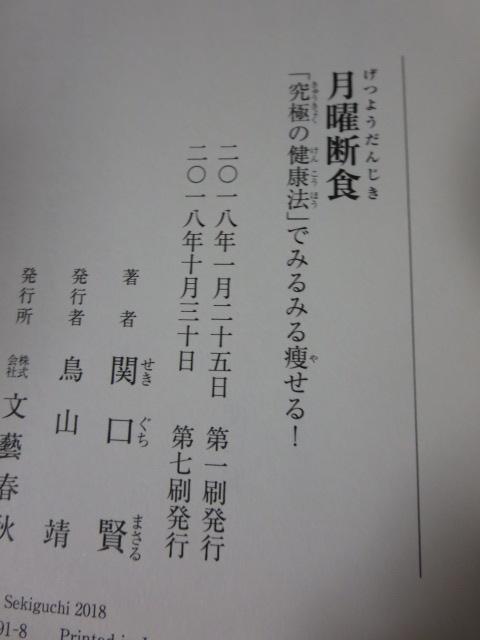 月曜断食
げつようだんじき
「究極の健康法」でみるみる痩せる！
きゅうきょく けんこうほう や
二〇一八年一月二十五日 第一刷発行
二〇一八年十月三十日 第七刷発行
著者 関口 賢
せき ぐち まさる
発行者 鳥山 靖
発行所 株式会社 文藝春秋
Sekiguchi 2018
91-8 Printed in